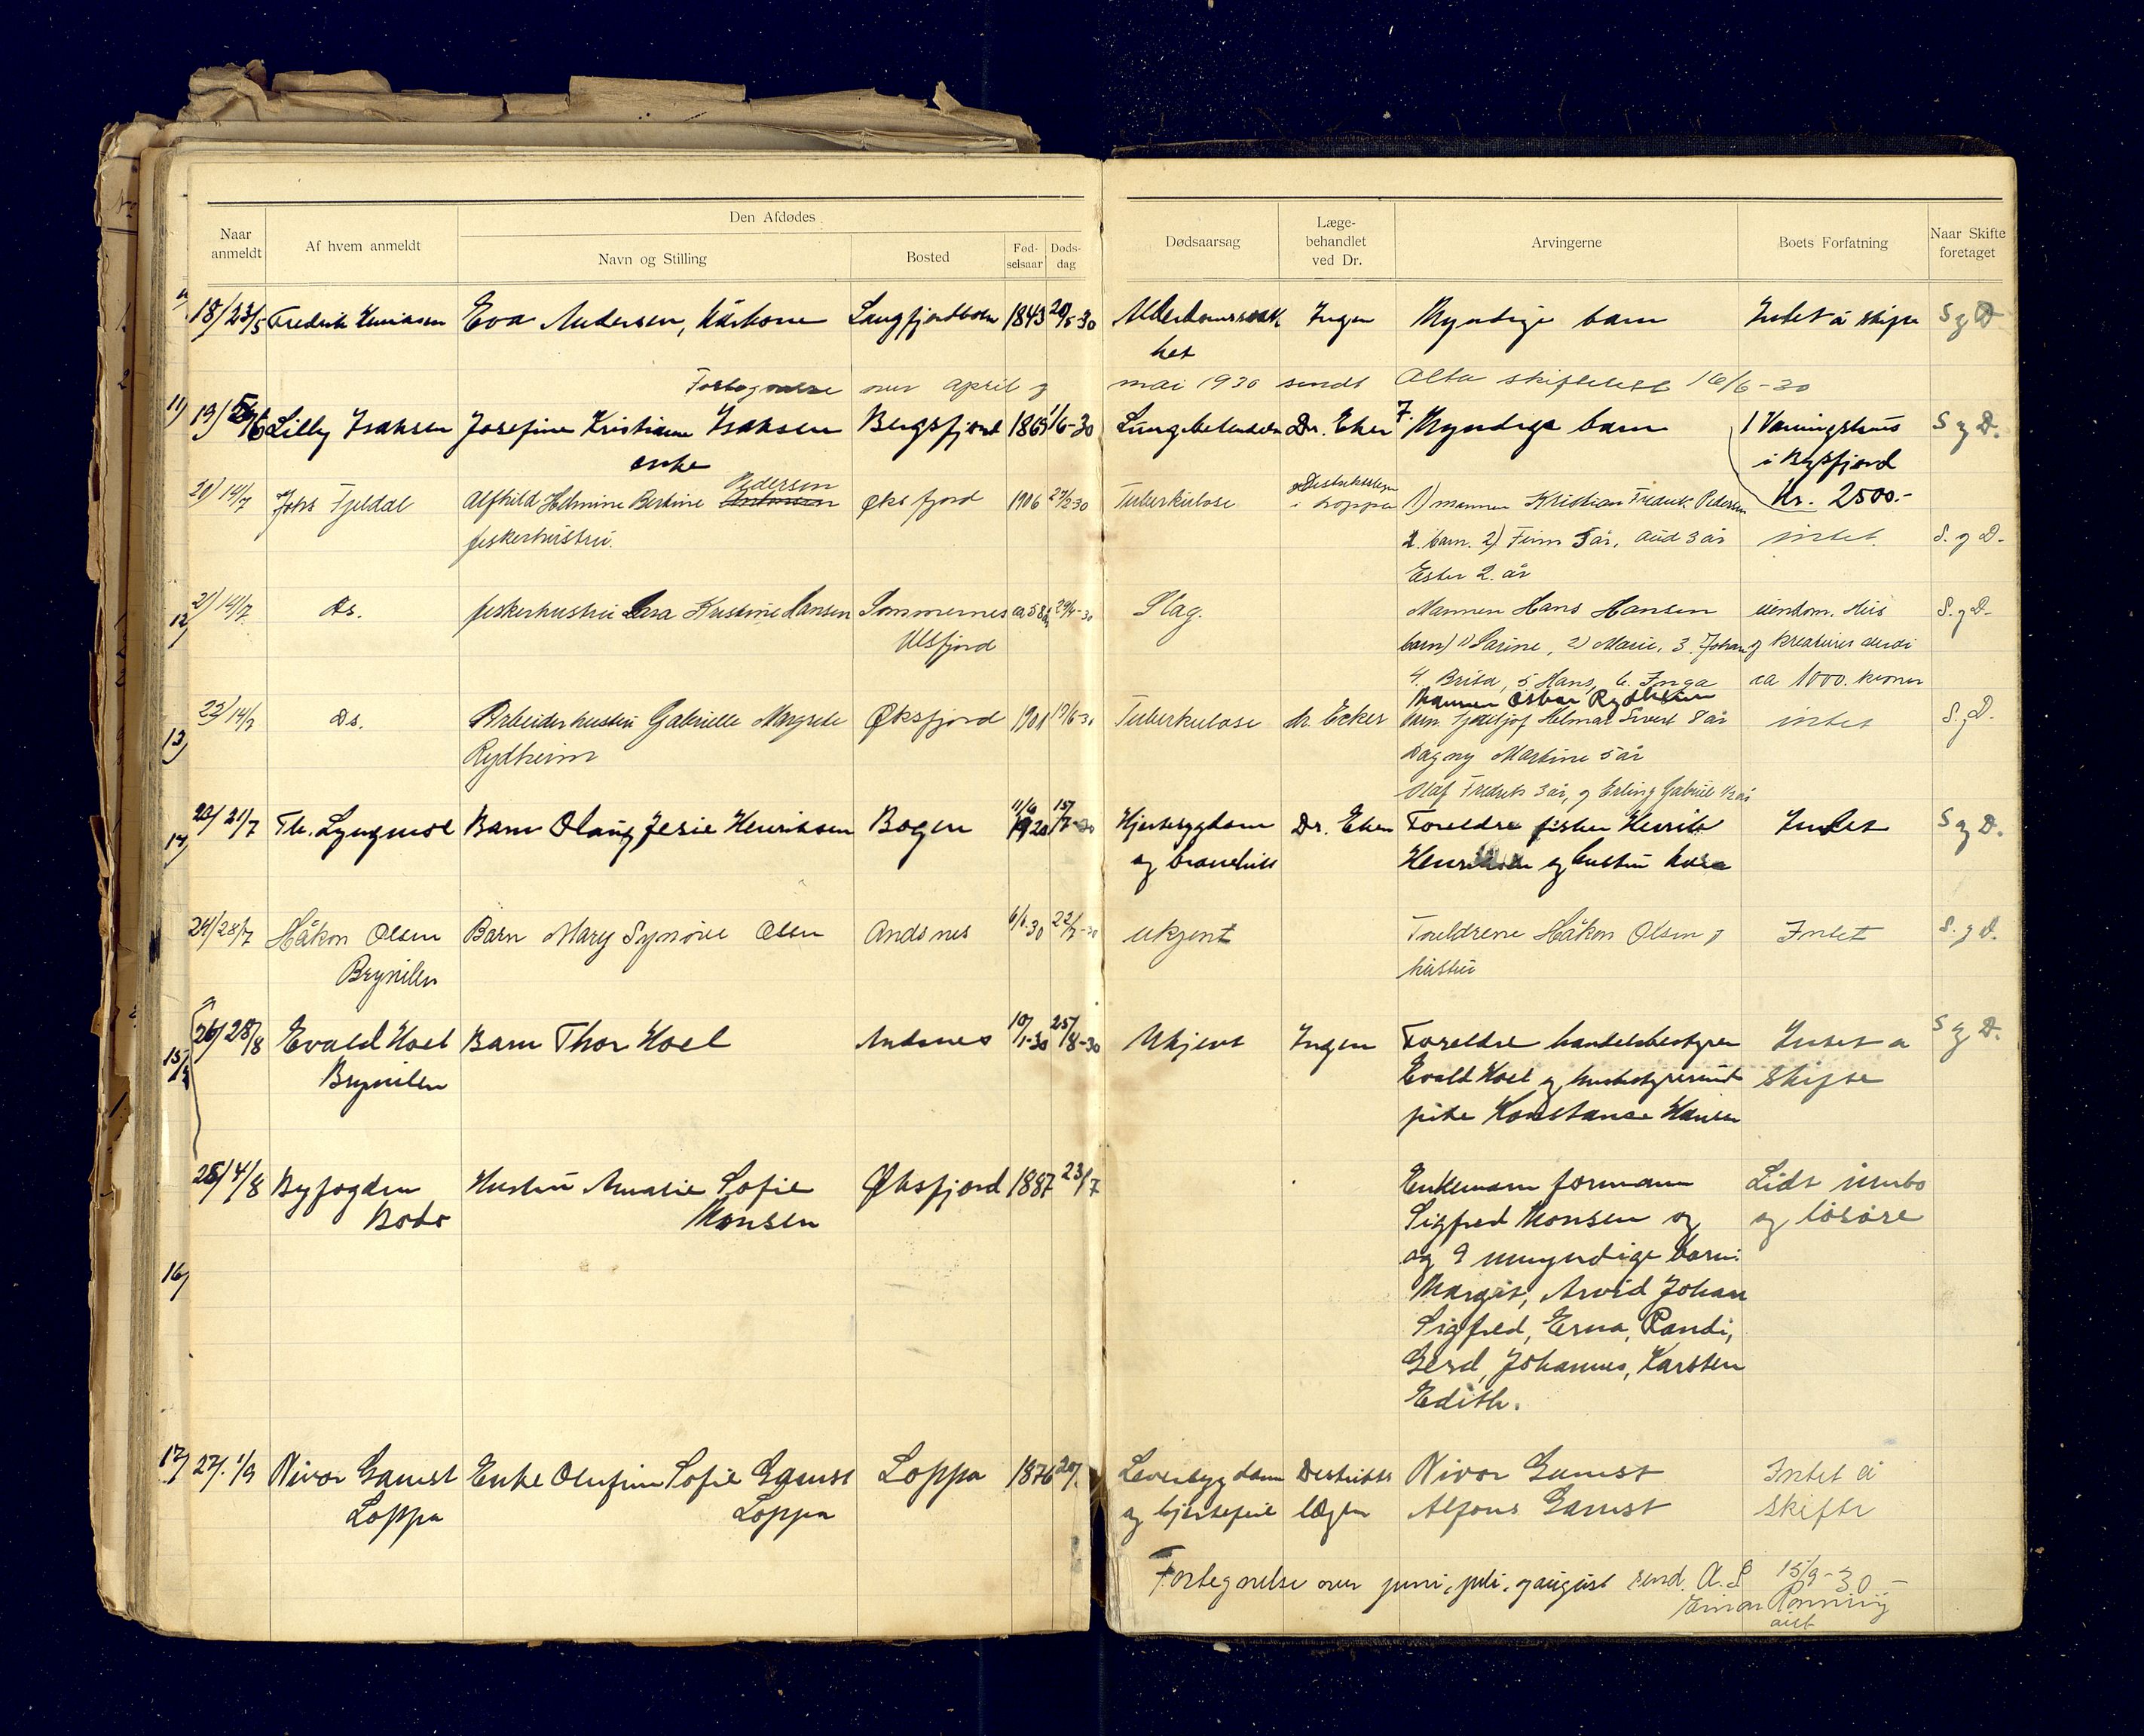 Den Afdødes
Naar anmeldt
Af hvem anmeldt
Navn og Stilling
Bosted
Fød-selsaar
Døds-dag
Dødsaarsag
Læge-behandlet ved Dr.
Arvingerne
Boets Forfatning
Naar Skifte foretaget
18/ 23/5 Fredrik Eva Andersen, Langfjordbotn 1843 20/5-30 Ingen Myndige barn Intet å skifte S g D
het
Fortegnelse over april g mai 1930 sendt Alta 16/6-30
11) 19/ Lilly Isaksen Josefine Isaksen Bergsfjord 1/6-30 Dr. Eker 7. Myndige barn 1 Vaaningshus S g D.
enke i Bgsfjord
Pedersen
20/ 14/7 Johs Fjeldal Alfhild Helmine Bertine Øksfjord 1906 Tuberkulose i Loppa 1) mannen Kristian Fredrik Pedersen Kr. 2500.-
fiskerhustru. barn. 2) Finn 5 år, Aud 3 år intet. S. g D-
Ester 2. år
12/ 21/ 14/7 Ds. fiskerhustru Kristine Hansen Sommernes ca 58 år 29/4-30 Slag. Mannen Hans Hansen eiendom. Hus S. g D-
Ulsfjord barn) 1) Sarine, 2) Marie, 3. Johan g kreaturer
4. Brita, 5 Hans, 6. Inga ca 1000. kroner
Mannen Oskar Rydheim
13/ 22/ 14/7 Ds. Arbeiderhustru Gabrielle Margrete Øksfjord 1901 Tuberkulose dr. Ecker barn. Helmar Sivert 8 år intet S. g D-
Rydheim Dagny Martine 5 år
Olaf Fredrik 3 år, g Erling Gabriel 1/2 år
14/ 23/ 21/7 Th. Lyngmoe Barn Olaug Jesie Henriksen Bogen 11/6 1920 15/7-30 Hjertesygdom Dr. Eker Foreldre fisker Henrik Intet S g D.
Henriksen g hustru
24/ 28/7 Håkon Olsen Barn Mary Synøve Olsen Andsnes 22/7-30 ukjent Foreldrene Håkon Olsen g Intet S. g D.
Brynilen hustru
15/ 26/ 28/8 Evald Hoel Barn Thor Hoel Andsnes 10/1-30 25/8-30 Ukjent Ingen Foreldre handelsbestyrer Intet a S g D.
Brynilen Evald Hoel g skifte
pike Konstanse Hansen
25/ 4/8 Byfogden Hustru Amalie Sofie Øksfjord 1887 23/7 Enkemann formann Lidt innbo
Bodø Monsen Sigfred Monsen og og løsøre
16/ og 9 umyndige barn:
Margit, Arvid Johan
Sigfred, Erna, Randi,
Gerd, Johannes, Karsten
Edith.
17/ 27. 1/9 Nivor Gamst Enke Olufine Sofie Gamst Loppa 1876 Leversygdom Distrikts Nivor Gamst Intet å
Loppa Loppa g hjertefeil lægen Alfons Gamst skifte
Fortegnelse over juni, juli, g august send. A. S 15/9-30
Einar Rønning